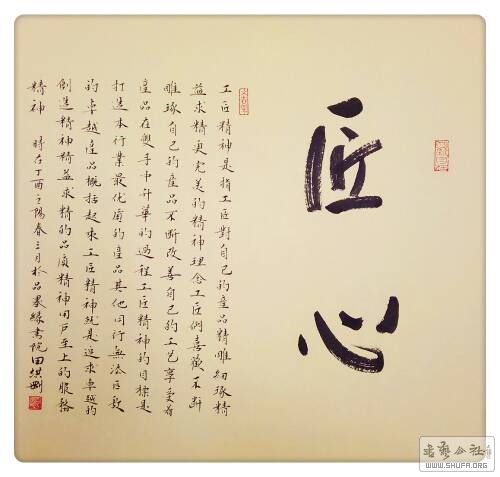 匠心
工匠精神是指工匠對自己的產品精雕細琢精
益求精更完美的精神理念工匠們喜歡不斷
雕琢自己的產品不斷改善自己的工艺享受着
產品在雙手中升華的過程工匠精神的目標是
打造本行業最优質的產品其他同行無法匹敵
的卓越產品概括起來工匠精神就是追求卓越的
創造精神精益求精的品質精神用戶至上的服務
精神 時在丁酉之陽春三月於品墨緣書院田
书艺公社
WWW.SHUFA.ORG